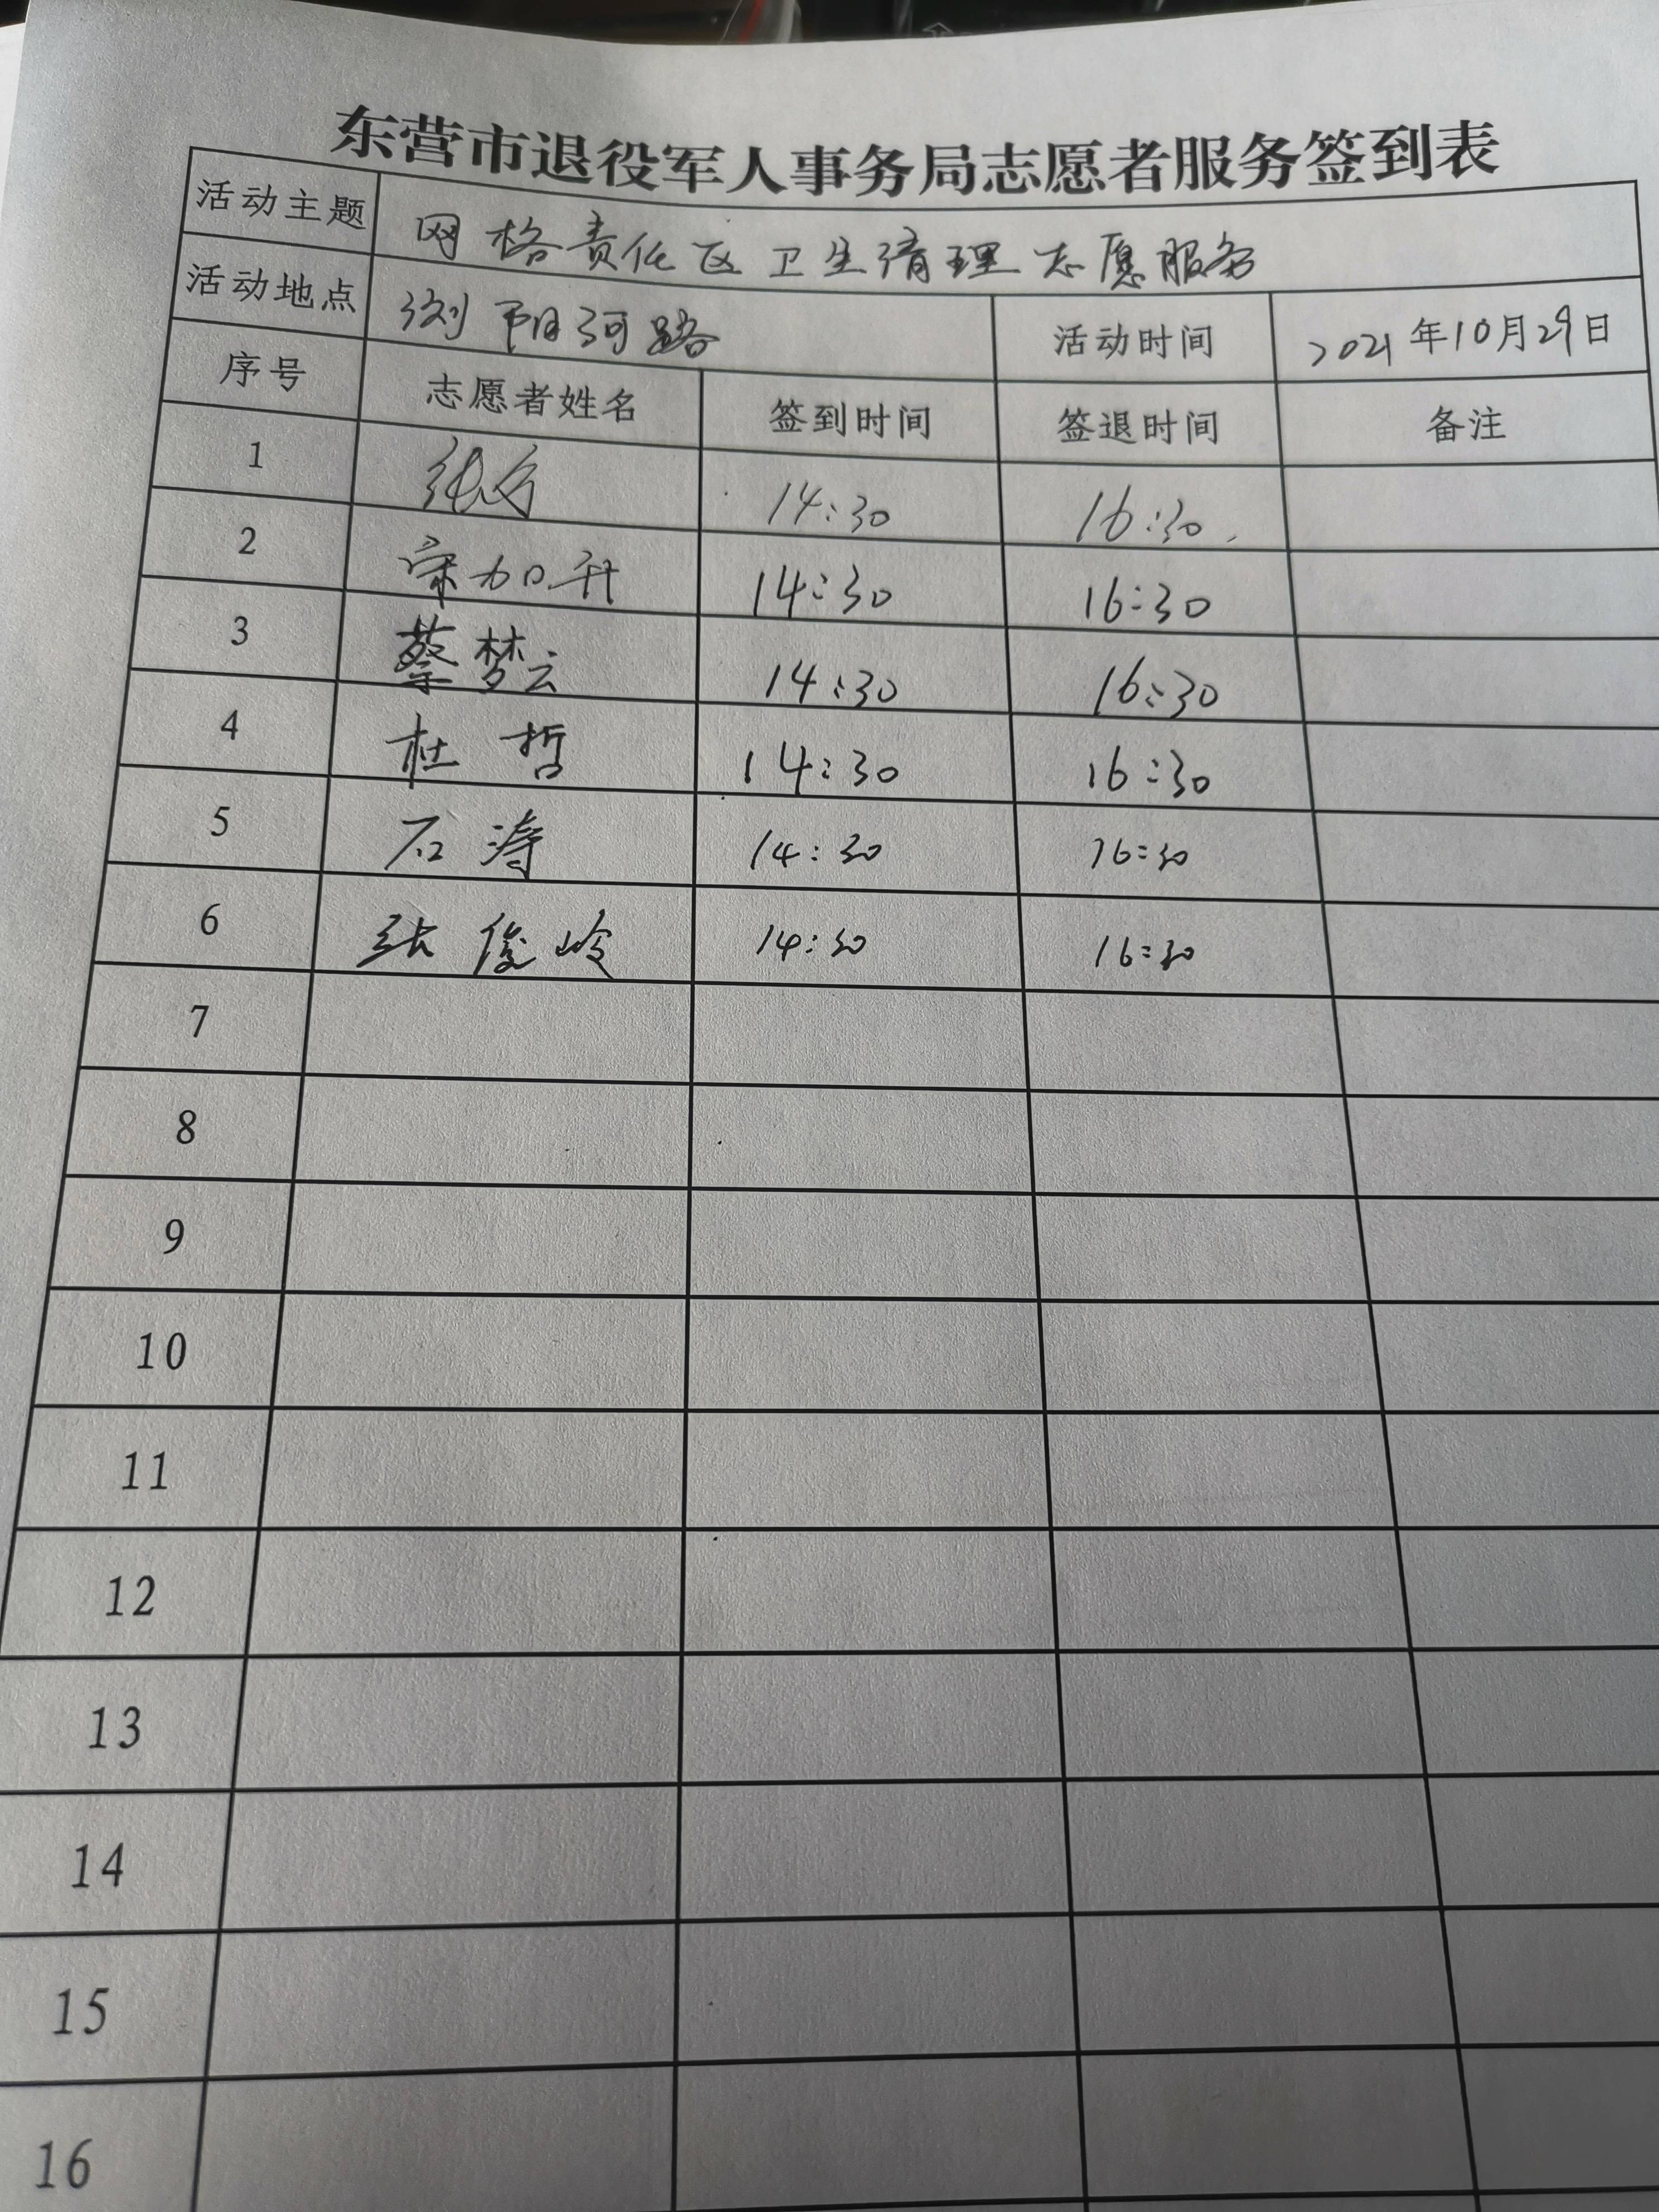 东营市退役军人事务局志愿者服务签到表
活动主题 网格责任区卫生清理志愿服务
活动地点 浏阳河路 活动时间 2021年10月29日
序号 志愿者姓名 签到时间 签退时间 备注
1 14:30 16:30
2 宋加升 14:30 16:30
3 蔡梦云 14:30 16:30
4 杜哲 14:30 16:30
5 石涛 14:30 16:30
6 张俊岭 14:30 16:30
7
8
9
10
11
12
13
14
15
16